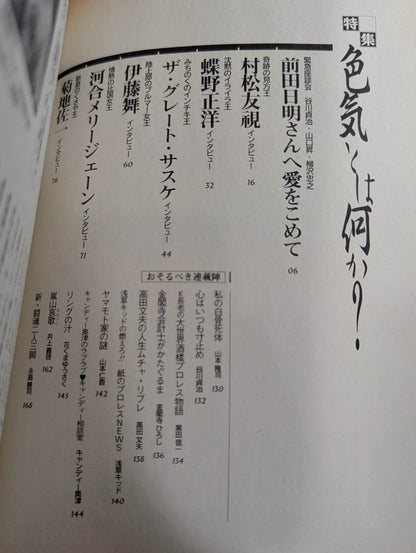 特集
色気とは何か？
緊急座談会 谷川貞治 山口昇 柳沢忠之
前田日明さんへ愛をこめて 06
奇跡の見方王
村松友視 インタビュー 16
沈黙のイライラ王
蝶野正洋 インタビュー 32
みちのくのインチキ王
ザ・グレート・サスケ インタビュー 44
陸上部のブルマー女王
伊藤舞 インタビュー 60
情熱の比国女王
河合メリージェーン インタビュー 71
新宿のくさや王
菊地佐一 インタビュー 76
おそるべき連載陣
私の白骨死体 山本隆司 130
心はいつも寸止め 谷川貞治 132
K長老の大世界酒楼プロレス物語 園田信一 134
金閣寺会計士がかたぐるま 金閣寺ひろし 136
高田文夫の人生ムチャ・リブレ 高田文夫 138
浅草キッドの燃えろ!! 紙のプロレスNEWS 浅草キッド 140
ヤマモト家の謎 山本仁香 142
キャンディー奥津のラブラブ♥キャンディー相談室 キャンディー奥津 144
リングの汁 花くまゆうさく 145
嵐山哀歌 井上義啓 162
新・闘魂二人三脚 永島勝司 168